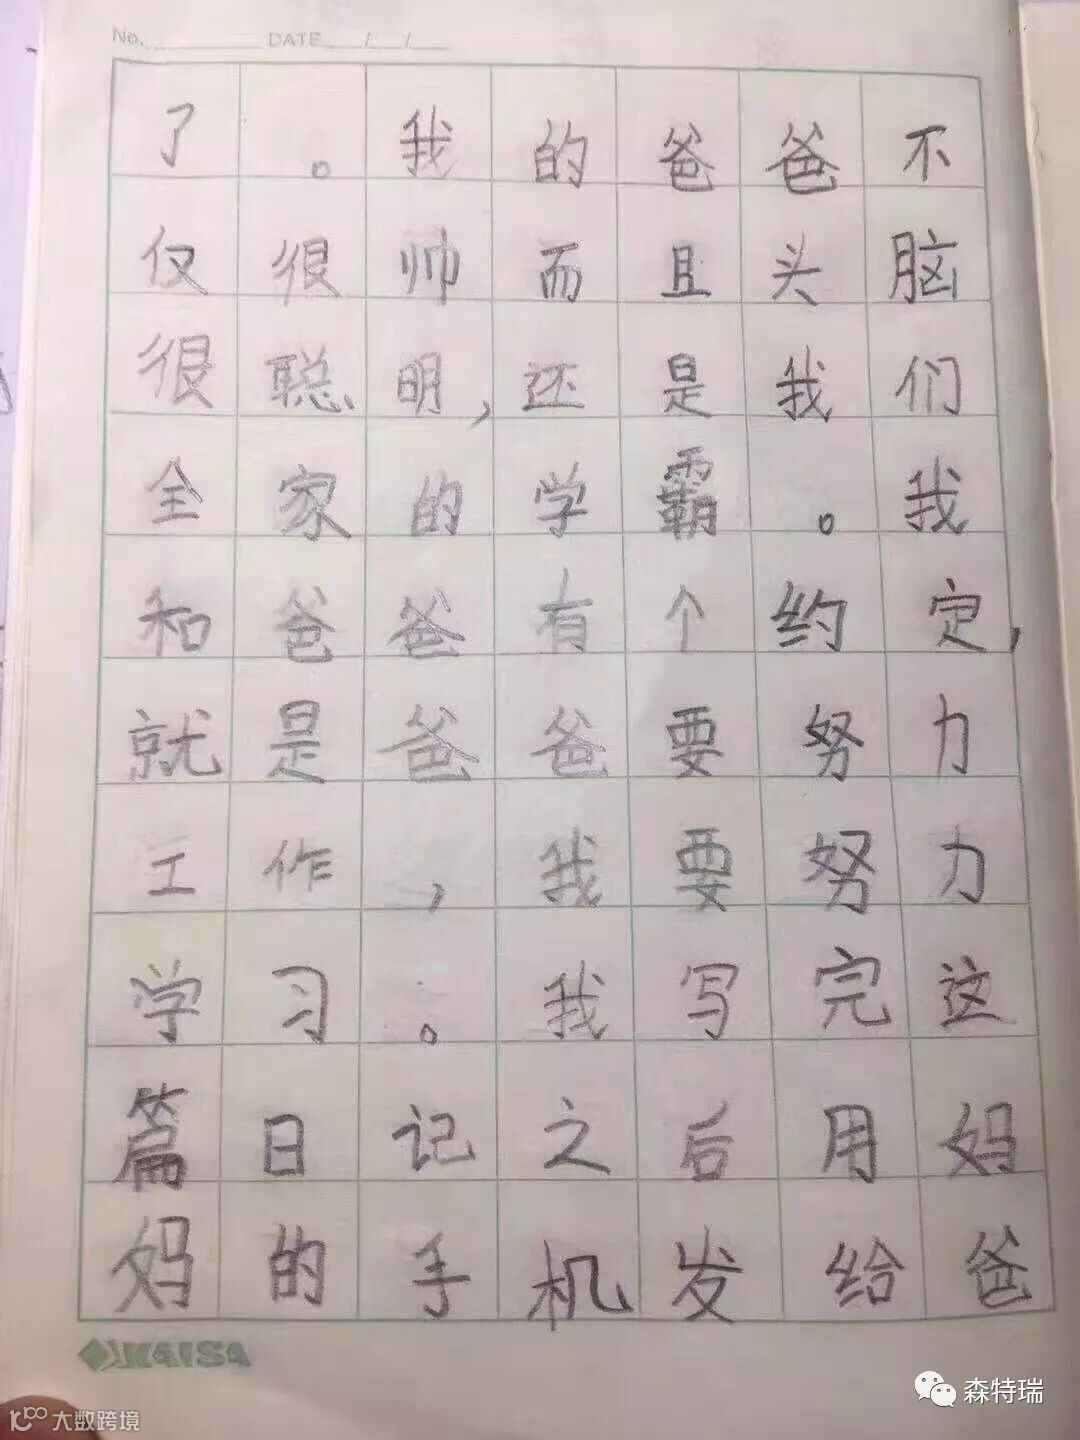 No. DATE / /
了。我的爸爸不
仅很帅而且头脑
很聪明,还是我们
全家的学霸。我
和爸爸有个约定,
就是爸爸要努力
工作,我要努力
学习。我写完这
篇日记之后用妈
妈的手机发给爸
KAISA
森特瑞
大数跨境